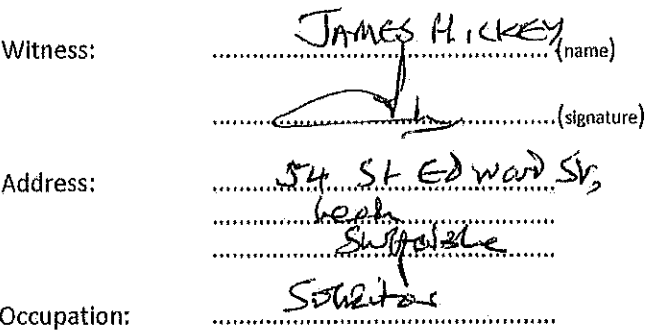 Witness: JAMES HICKEY (name)
(signature)
Address: 54 St Edward St,
Leek
Staffordshire
Occupation: Solicitor